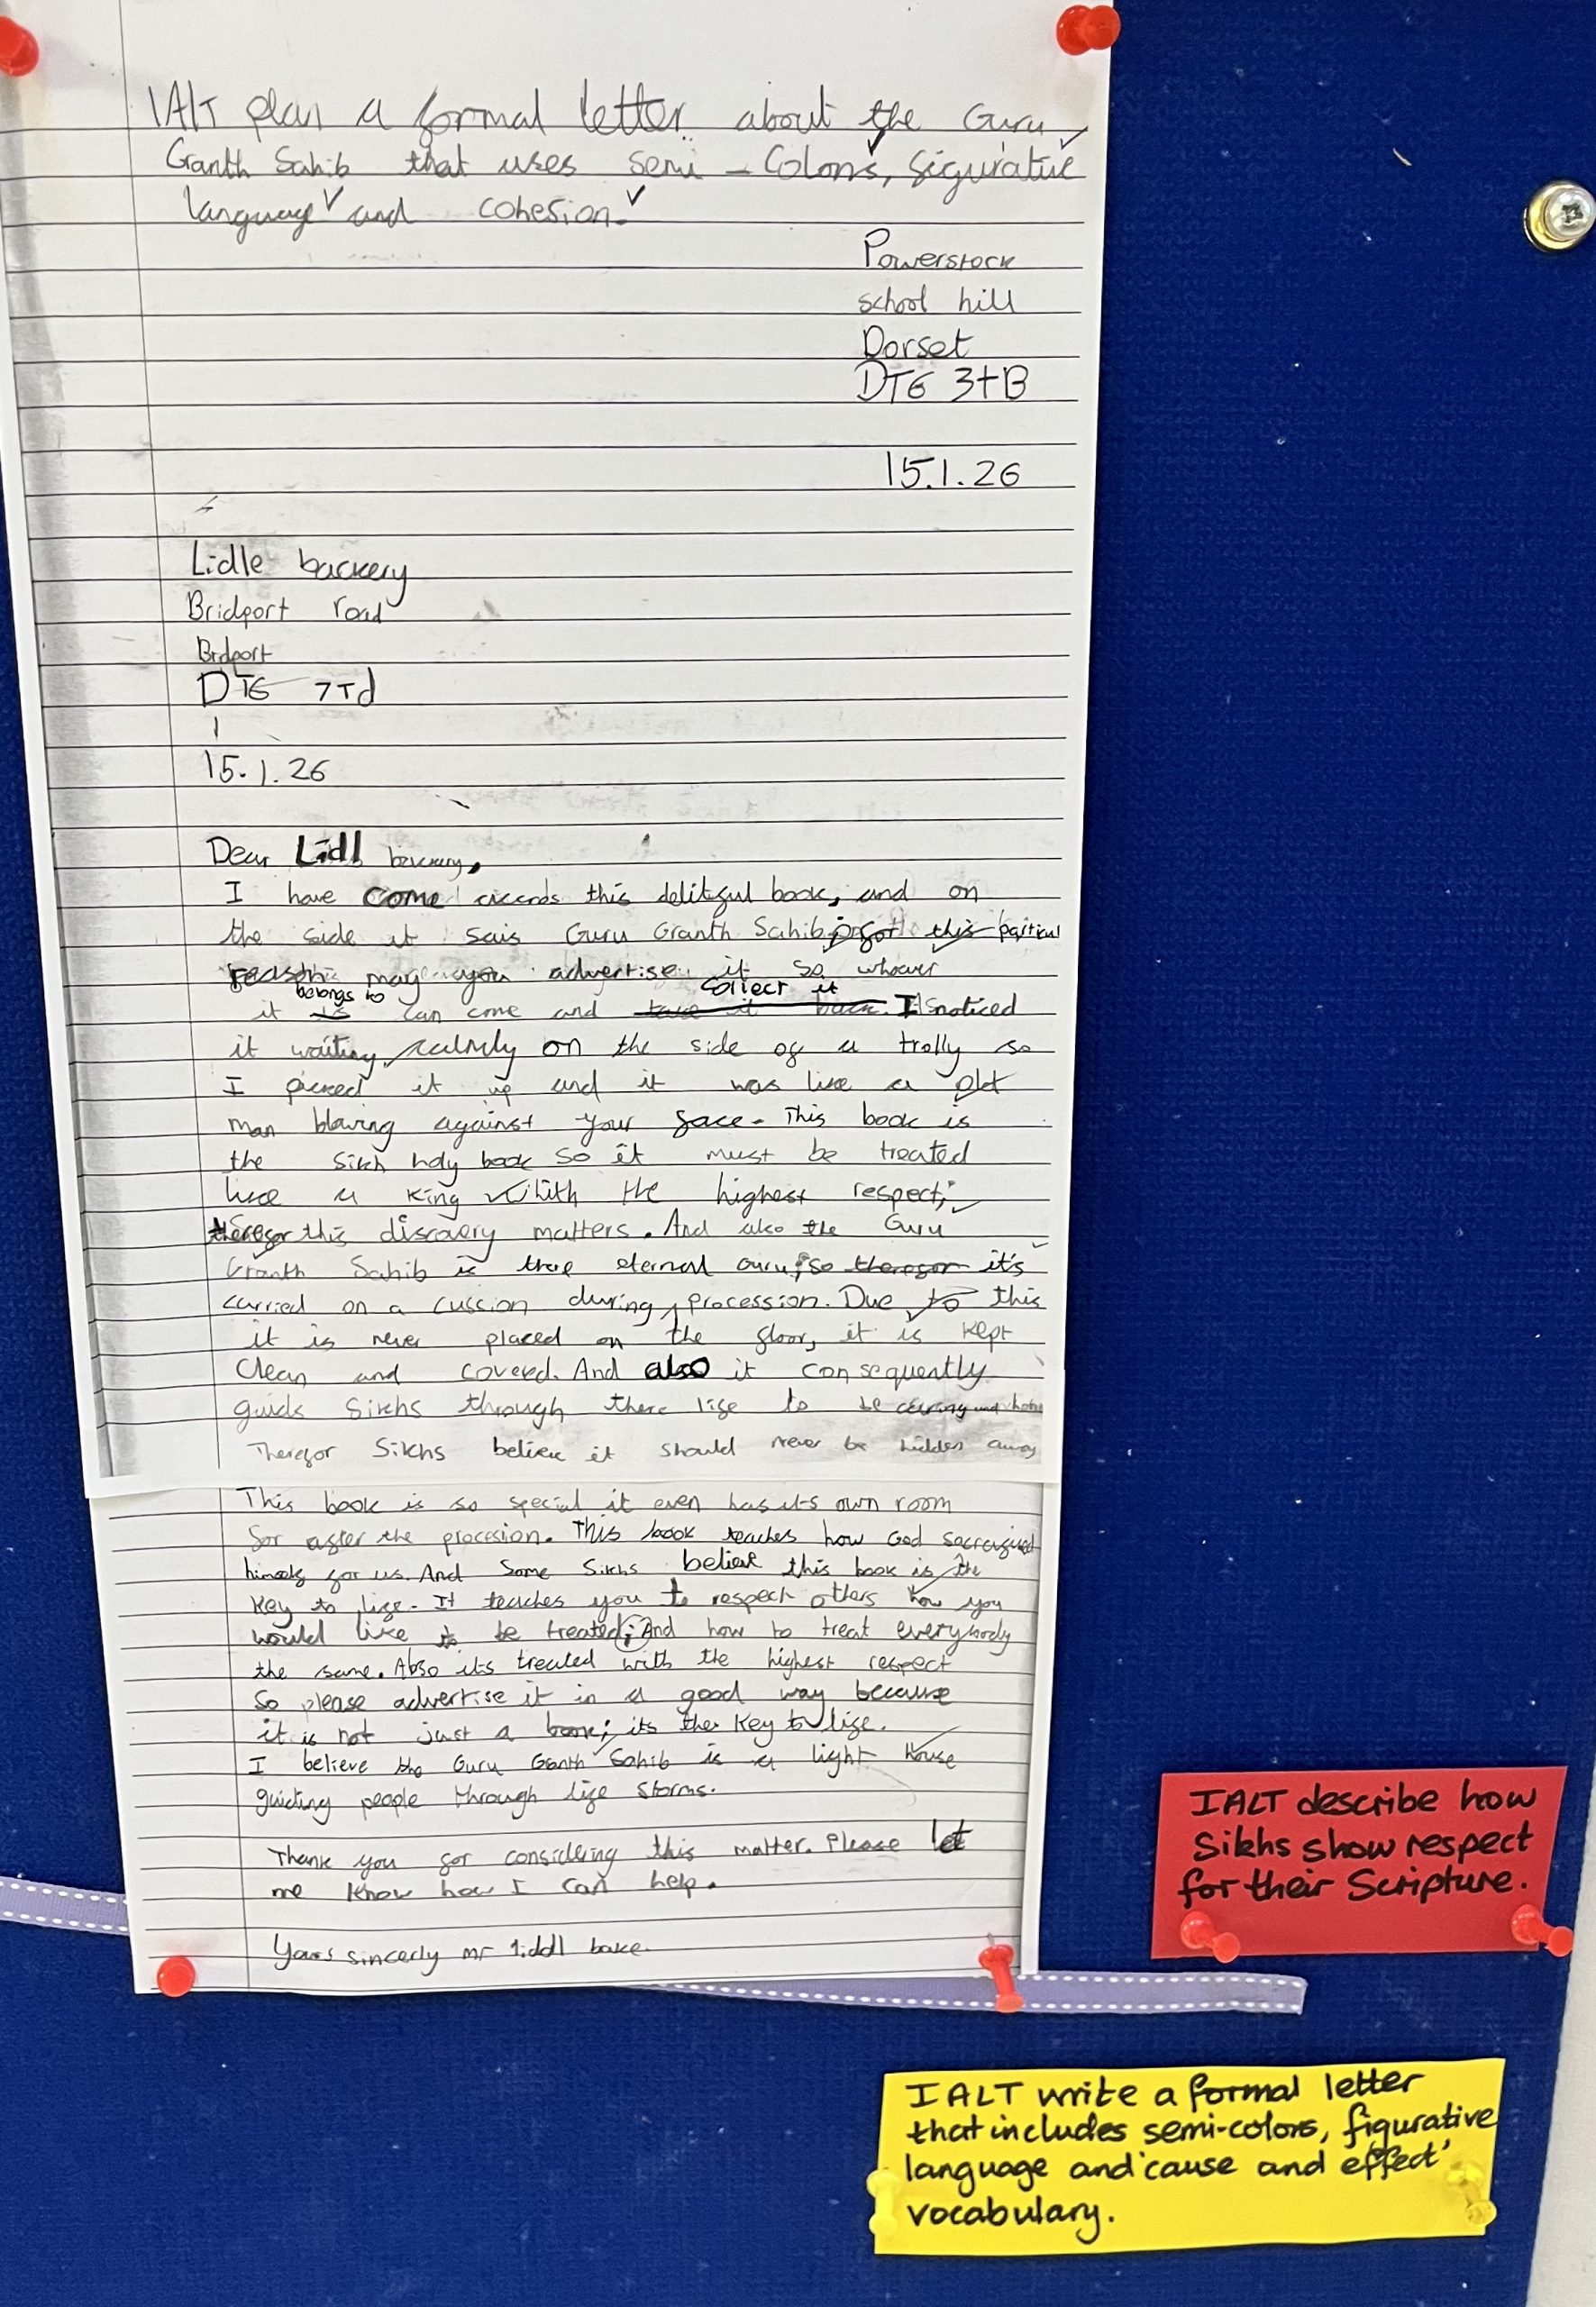 IALT plan a formal letter about the Guru
Granth Sahib that uses semi-Colons, figurative
language and cohesion.
Powerstock
school hill
Dorset
DT6 3tB
15.1.26
Lidle backery
Bridport road
Bridport
DT6 7Td
15.1.26
Dear Lidl backery,
I have come accrods this delitful book, and on
the side it sais Guru Granth Sahib; for this particul
reason may you advertise it so whoever
it belongs to can come and collect it. I noticed
it waiting calmly on the side of a trolly so
I picked it up and it was like a old
man blowing against your face. This book is
the Sikh holy book so it must be treated
like a king with the highest respect;
therefor this discovery matters. And also the Guru
Granth Sahib is there eternal guru; so therefor it's
carried on a cussion during procession. Due to this
it is never placed on the floor, it is kept
clean and covered. And also it consequently
guids Sikhs through there life to be caring and
Therefor Sikhs believe it should never be hidden away
This book is so special it even has its own room
for after the procesion. This book teaches how God
himself for us. And some Sikhs believe this book is the
key to life. It teaches you to respect others how you
would like to be treated; And how to treat everybody
the same. Also its treated with the highest respect
So please advertise it in a good way because
it is not just a book; its the key to life.
I believe the Guru Granth Sahib is a light house
guiding people through life storms.
Thank you for considering this matter. Please let
me know how I can help.
Yours sincerly mr liddl bake.
IALT describe how
Sikhs show respect
for their Scripture.
IALT write a formal letter
that includes semi-colons, figurative
language and 'cause and effect'
vocabulary.